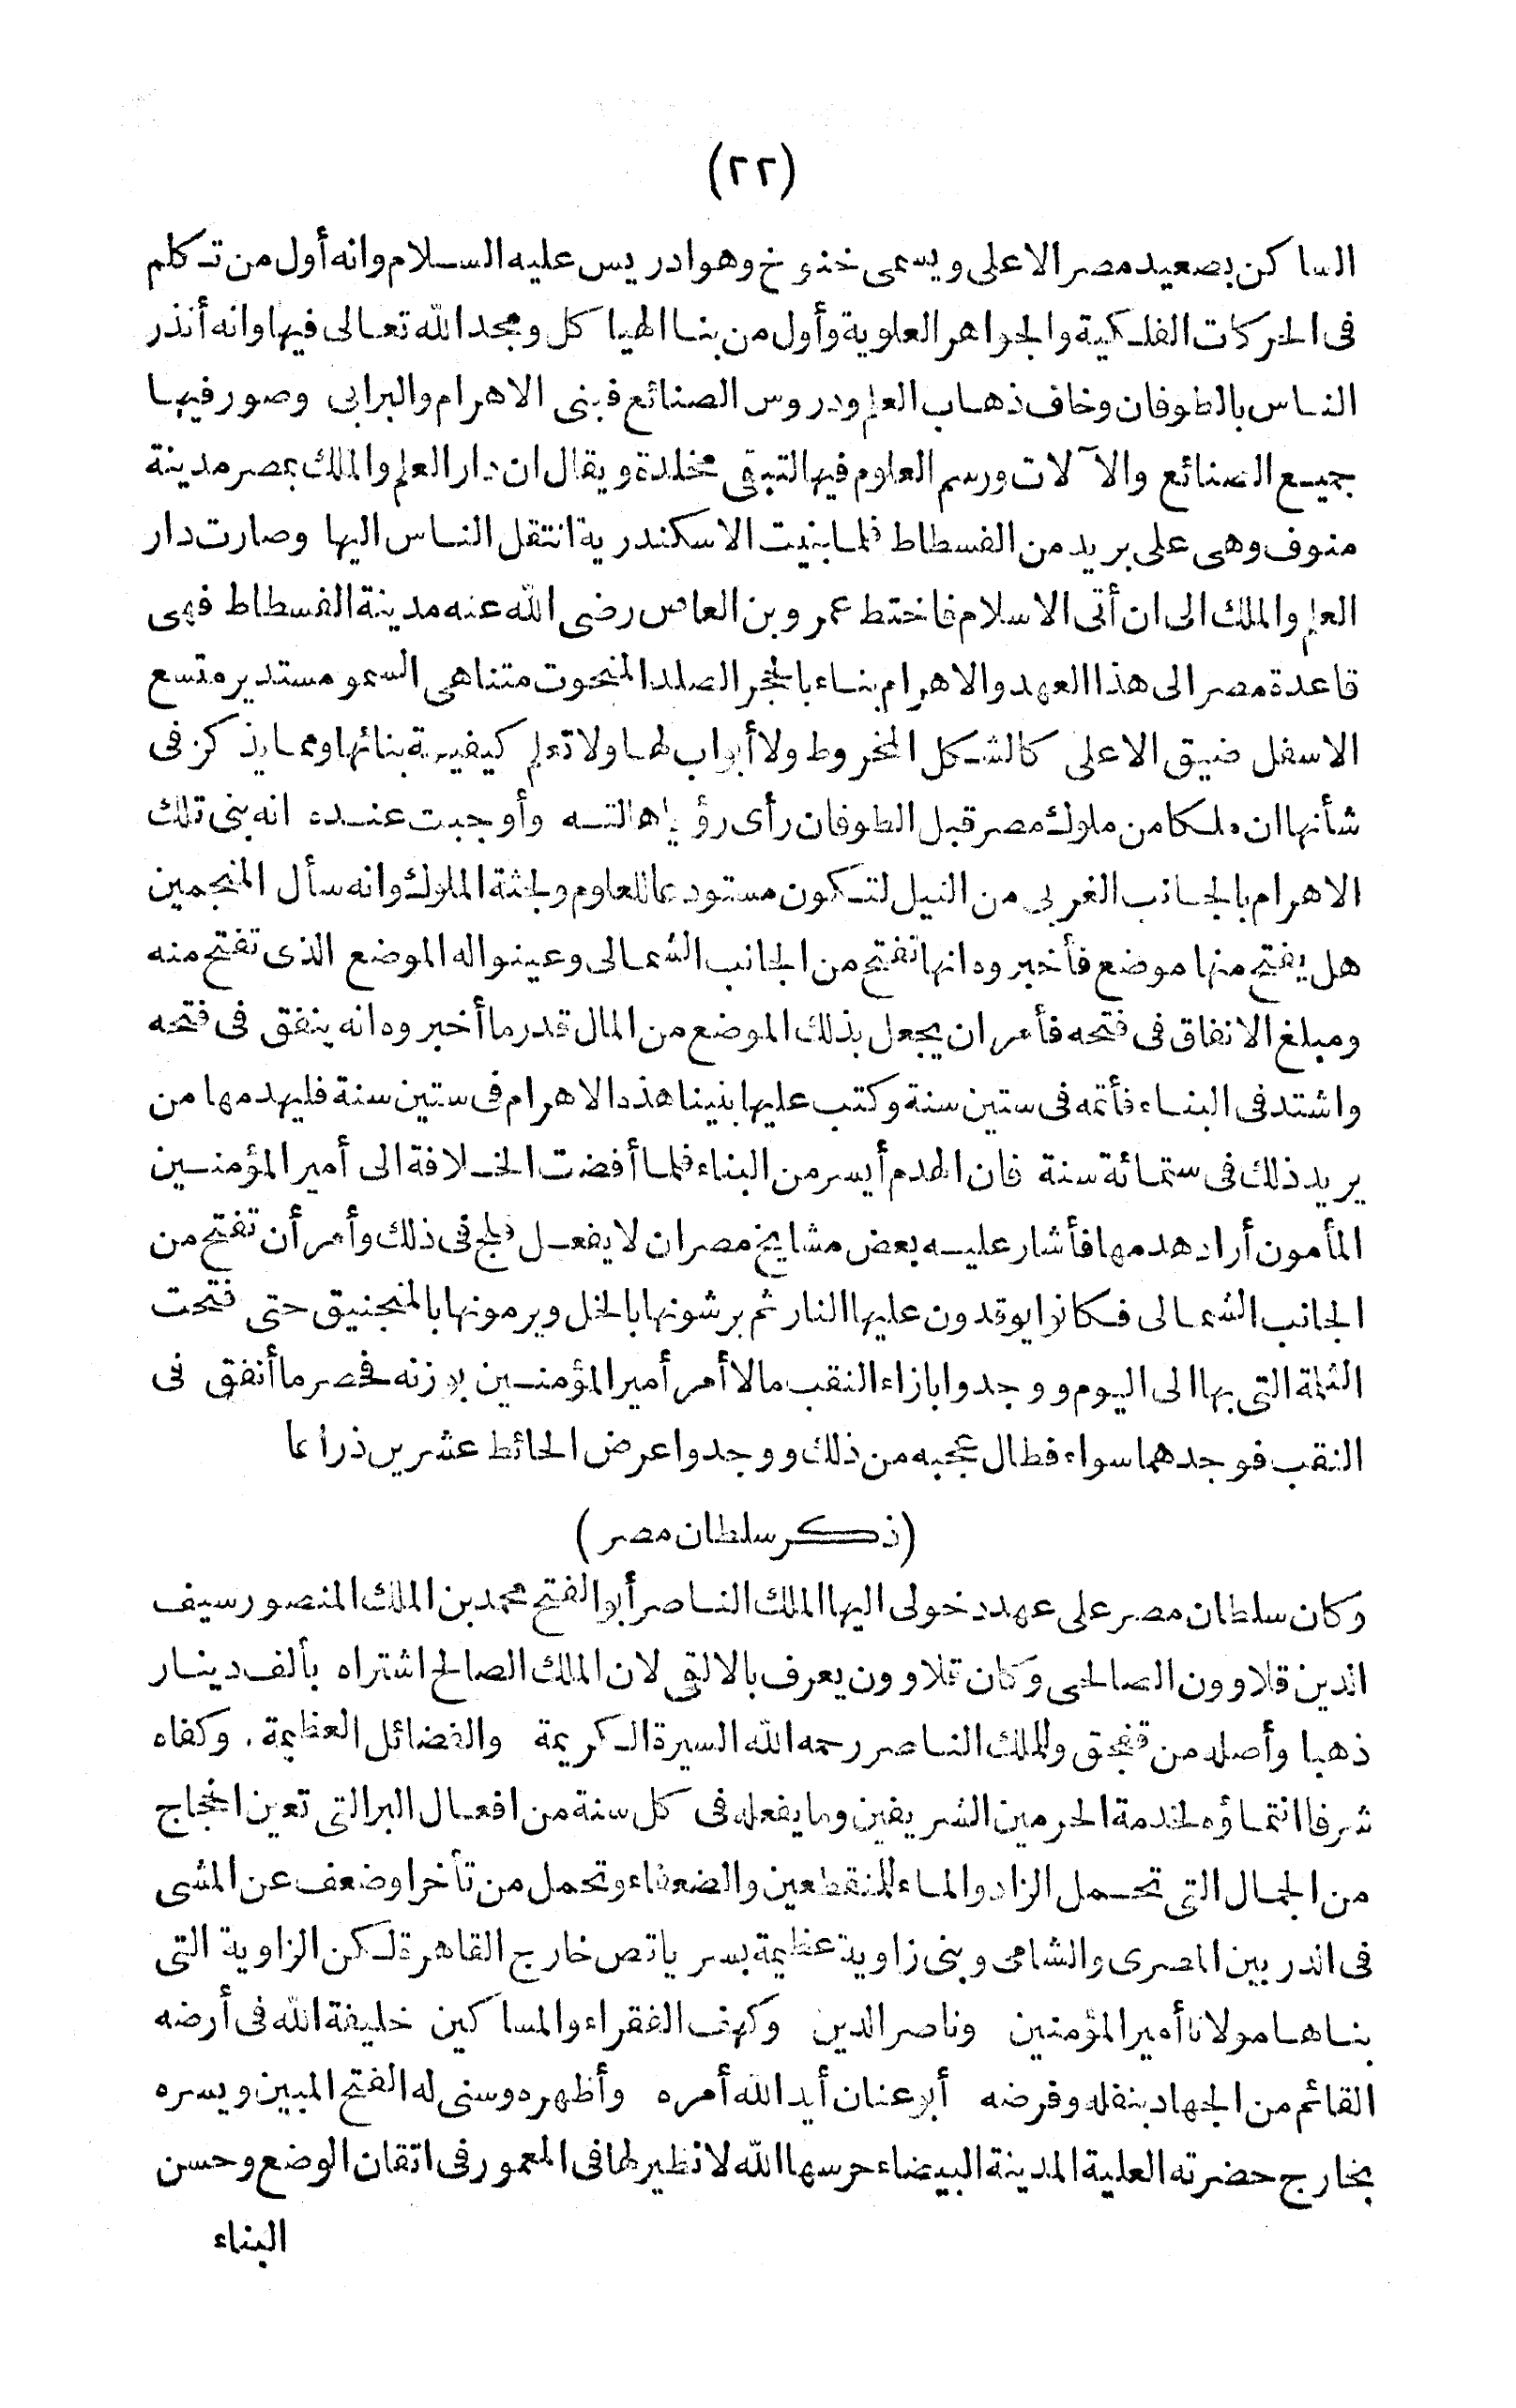 (٢٢)
الساكن بصعيد مصر الاعلى ويسمى خنوخ وهو ادريس عليه السلام وانه أول من تكلم
فى الحركات الفلكية والجواهر العلوية وأول من بنا الهياكل ومجد الله تعالى فيها وانه أنذر
الناس بالطوفان وخاف ذهاب العلم ودروس الصنائع فبنى الاهرام والبرابى وصور فيها
جميع الصنائع والآلات ورسم العلوم فيها لتبقى مخلدة ويقال ان دار العلم والملك بمصر مدينة
منوف وهى على بريد من الفسطاط فلما بنيت الاسكندرية انتقل الناس اليها وصارت دار
العلم والملك الى ان أتى الاسلام فاختط عمرو بن العاص رضى الله عنه مدينة الفسطاط فهى
قاعدة مصر الى هذا العهد والاهرام بناء بالحجر الصلد المنحوت متناهى السمو مستدير متسع
الاسفل ضيق الاعلى كالشكل المخروط ولا أبواب لها ولا تعلم كيفية بنائها ومما يذكر فى
شأنها ان ملكا من ملوك مصر قبل الطوفان رأى رؤيا هالته وأوجبت عنده انه بنى تلك
الاهرام بالجانب الغربى من النيل لتكون مستودعا للعلوم ولجثة الملوك وانه سأل المنجمين
هل يفتح منها موضع فأخبروه انها تفتح من الجانب الشمالى وعينوا له الموضع الذى تفتح منه
ومبلغ الانفاق فى فتحه فأمر ان يجعل بذلك الموضع من المال قدر ما أخبروه انه ينفق فى فتحه
واشتد فى البناء فأتمه فى ستين سنة وكتب عليها بنينا هذه الاهرام فى ستين سنة فليهدمها من
يريد ذلك فى ستمائة سنة فان الهدم أيسر من البناء فلما أفضت الخلافة الى أمير المؤمنين
المأمون أراد هدمها فأشار عليه بعض مشايخ مصر ان لا يفعل فلج فى ذلك وأمر أن تفتح من
الجانب الشمالى فكانوا يوقدون عليها النار ثم يرشونها بالخل ويرمونها بالمنجنيق حتى فتحت
الثلمة التى بها الى اليوم ووجدوا بازاء النقب مالا أمر أمير المؤمنين بوزنه فحصر ما أنفق فى
النقب فوجدهما سواء فطال عجبه من ذلك ووجدوا عرض الحائط عشرين ذراعا
(ذكر سلطان مصر)
وكان سلطان مصر على عهد دخولى اليها الملك الناصر أبو الفتح محمد بن الملك المنصور سيف
الدين قلاوون الصالحى وكان قلاوون يعرف بالالفى لان الملك الصالح اشتراه بألف دينار
ذهبا وأصله من قفجق وللملك الناصر رحمه الله السيرة الكريمة والفضائل العظيمة. وكفاه
شرفا انتماؤه لخدمة الحرمين الشريفين وما يفعله فى كل سنة من افعال البر التى تعين الحجاج
من الجمال التى تحمل الزاد والماء للمنقطعين والضعفاء وتحمل من تأخر او ضعف عن المشى
فى الدربين المصرى والشامى وبنى زاوية عظيمة بسرياقص خارج القاهرة لكن الزاوية التى
بناها مولانا أمير المؤمنين وناصر الدين وكهف الفقراء والمساكين خليفة الله فى أرضه
القائم من الجهاد بنفله وفرضه أبو عنان أيد الله أمره وأظهره وسنى له الفتح المبين ويسره
بخارج حضرته العلية المدينة البيضاء حرسها الله لا نظير لها فى المعمور فى اتقان الوضع وحسن
البناء